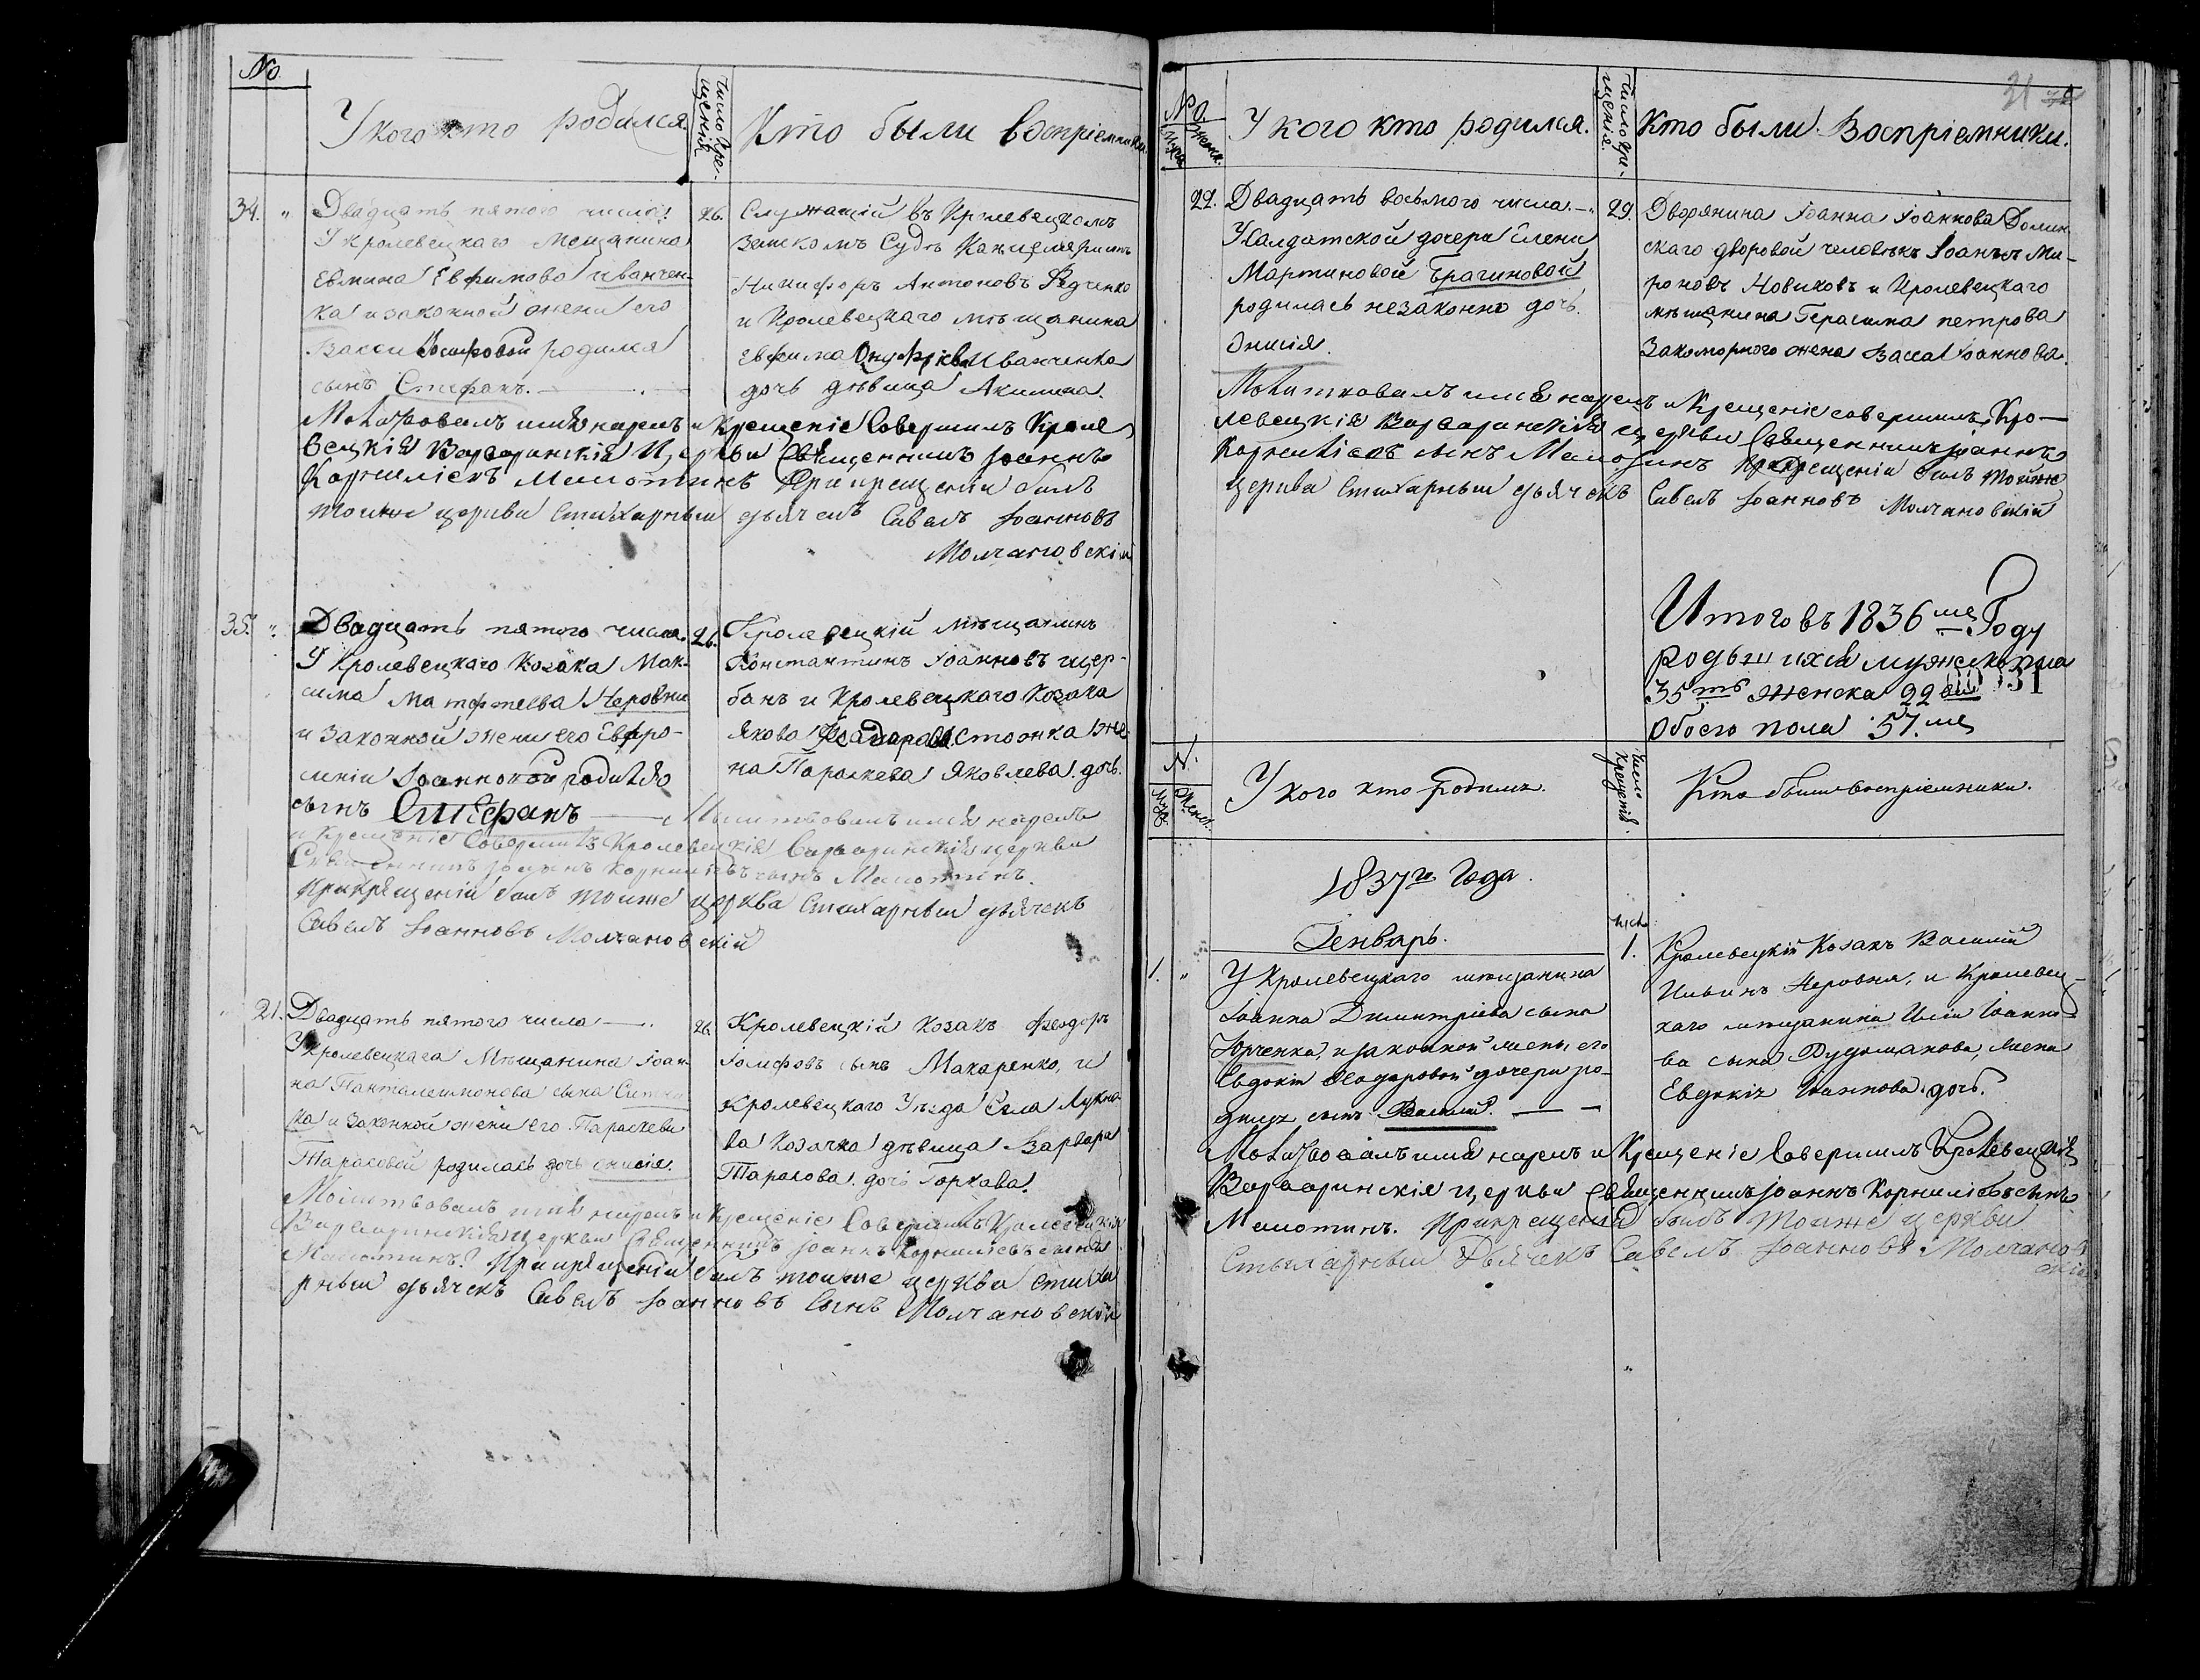 №
У кого кто родился.
Число Кре-
щенія
Кто были воспріемники.
34. "
Двадцать пятого числа.
У Кролевецкаго Мещанина
Евмина Евфимова Иванчен-
ка и законной жены его
Вассы Іосифовой родился
сынъ Стефанъ.
26.
Служащій въ Кролевецкомъ
Земскомъ Судѣ Канцеляристъ
Никифоръ Антоновъ Федченко
и Кролевецкаго мѣщанина
Евфима Онуфріева Иванченка
дочь дѣвица Акилина.
Молитвовалъ имя нарекъ и Крещеніе Совершилъ Кроле
вецкія Варваринскія Церкви Священникъ Іоаннъ
Корниліевъ Малютинъ При крещеніи былъ
тоиже церкви Стихарный дьячекъ Савелъ Іоанновъ
Молчановскій
35. "
Двадцать пятого числа.
У Кролевецкаго Козака Мак-
сима Матфѣева Неровни
и Законной жены его Евфро-
синіи Іоанновой родился
сынъ Стефанъ
26.
Кролевецкій Мѣщанинъ
Константинъ Іоанновъ Щер-
банъ и Кролевецкаго Козака
Якова Феодорова Стоянка же
на Параскева Яковлева дочь.
Молитвовалъ имя нарекъ
и Крещеніе Совершилъ Кролевецкія Варваринскія церкви
Священникъ Іоаннъ Корниліевъ сынъ Малютинъ.
При крещеніи былъ тоиже церкви Стихарный дьячекъ
Савелъ Іоанновъ Молчановскій
21.
Двадцать пятого числа
У Кролевецкаго Мѣщанина Іоан
на Панталеимонова сына Ситни
ка и Законной жены его Параскевы
Тарасовой родилась дочь Онисія.
26.
Кролевецкій Козакъ Феодоръ
Іосифовъ сынъ Макаренко, и
Кролевецкаго Уезда Села Лукно
ва Козачка дѣвица Варвара
Тарасова дочь Горкава.
Молитвовалъ имя нарекъ и Крещеніе Совершилъ Кролевецкія
Варваринскія церкви Священникъ Іоаннъ Корниліевъ сынъ
Малютинъ. При крещеніи былъ тоиже церкви Стиха
рный дьячекъ Савелъ Іоанновъ Сынъ Молчановскій
31
№
Муж. Женск.
У кого кто родился.
Число Кре-
щенія.
Кто были Воспріемники.
22.
Двадцать восьмого числа
У Салдатской дочери Елены
Мартиновой Брагиновой
родилась незаконно дочь
Онисія.
29.
Дворянина Іоанна Іоаннова Долин
скаго дворовой человѣкъ Іоаннъ Ми-
роновъ Новиковъ и Кролевецкаго
мѣщанина Герасима Петрова
Закоморного жена Васса Іоаннова.
Молитвовалъ имя нарекъ и Крещеніе совершилъ Кро-
левецкія Варваринскія церкви Священникъ Іоаннъ
Корниліевъ сынъ Малютинъ При Крещеніи былъ тоиже
церкви Стихарный дьячекъ Савелъ Іоанновъ Молчановскій
Итого въ 1836 мъ Году
родывшихся мужска пола
35 ть женска 22 ои
обоего пола 57. мъ
31
№.
Муж. Женс.
У кого кто родился.
Число
Крещенія.
Кто были воспріемники.
1837го Года.
Генварь.
Числ.
1. "
У Кролевецкаго мѣщанина
Іоанна Димитріева сына
Юрченка, и законной жены его
Евдокіи Феодоровой дочери ро-
дился сынъ Василій.
1.
Кролевецкій Козакъ Василій
Ильинъ Неровня, и Кролевец-
каго мѣщанина Иліи Іоанно
ва сына Дудомахова, жена
Евдокія Іоаннова дочь.
Молитвовалъ имя нарекъ и Крещеніе Совершилъ Кролевецкія
Варваринскія церкви Священникъ Іоаннъ Корниліевъ сынъ
Малютинъ. При крещеніи былъ Тоиже церкви
Стихарный Дьячекъ Савелъ Іоанновъ Молчанов
скій